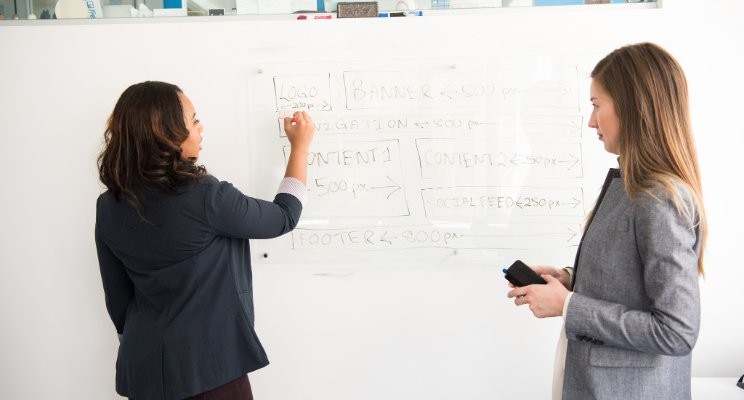 LOGO
BANNER 500 px
800 px
CONTENT 1
500 px
CONTENT 2
SOCIAL FEED 250px
FOOTER 800 px